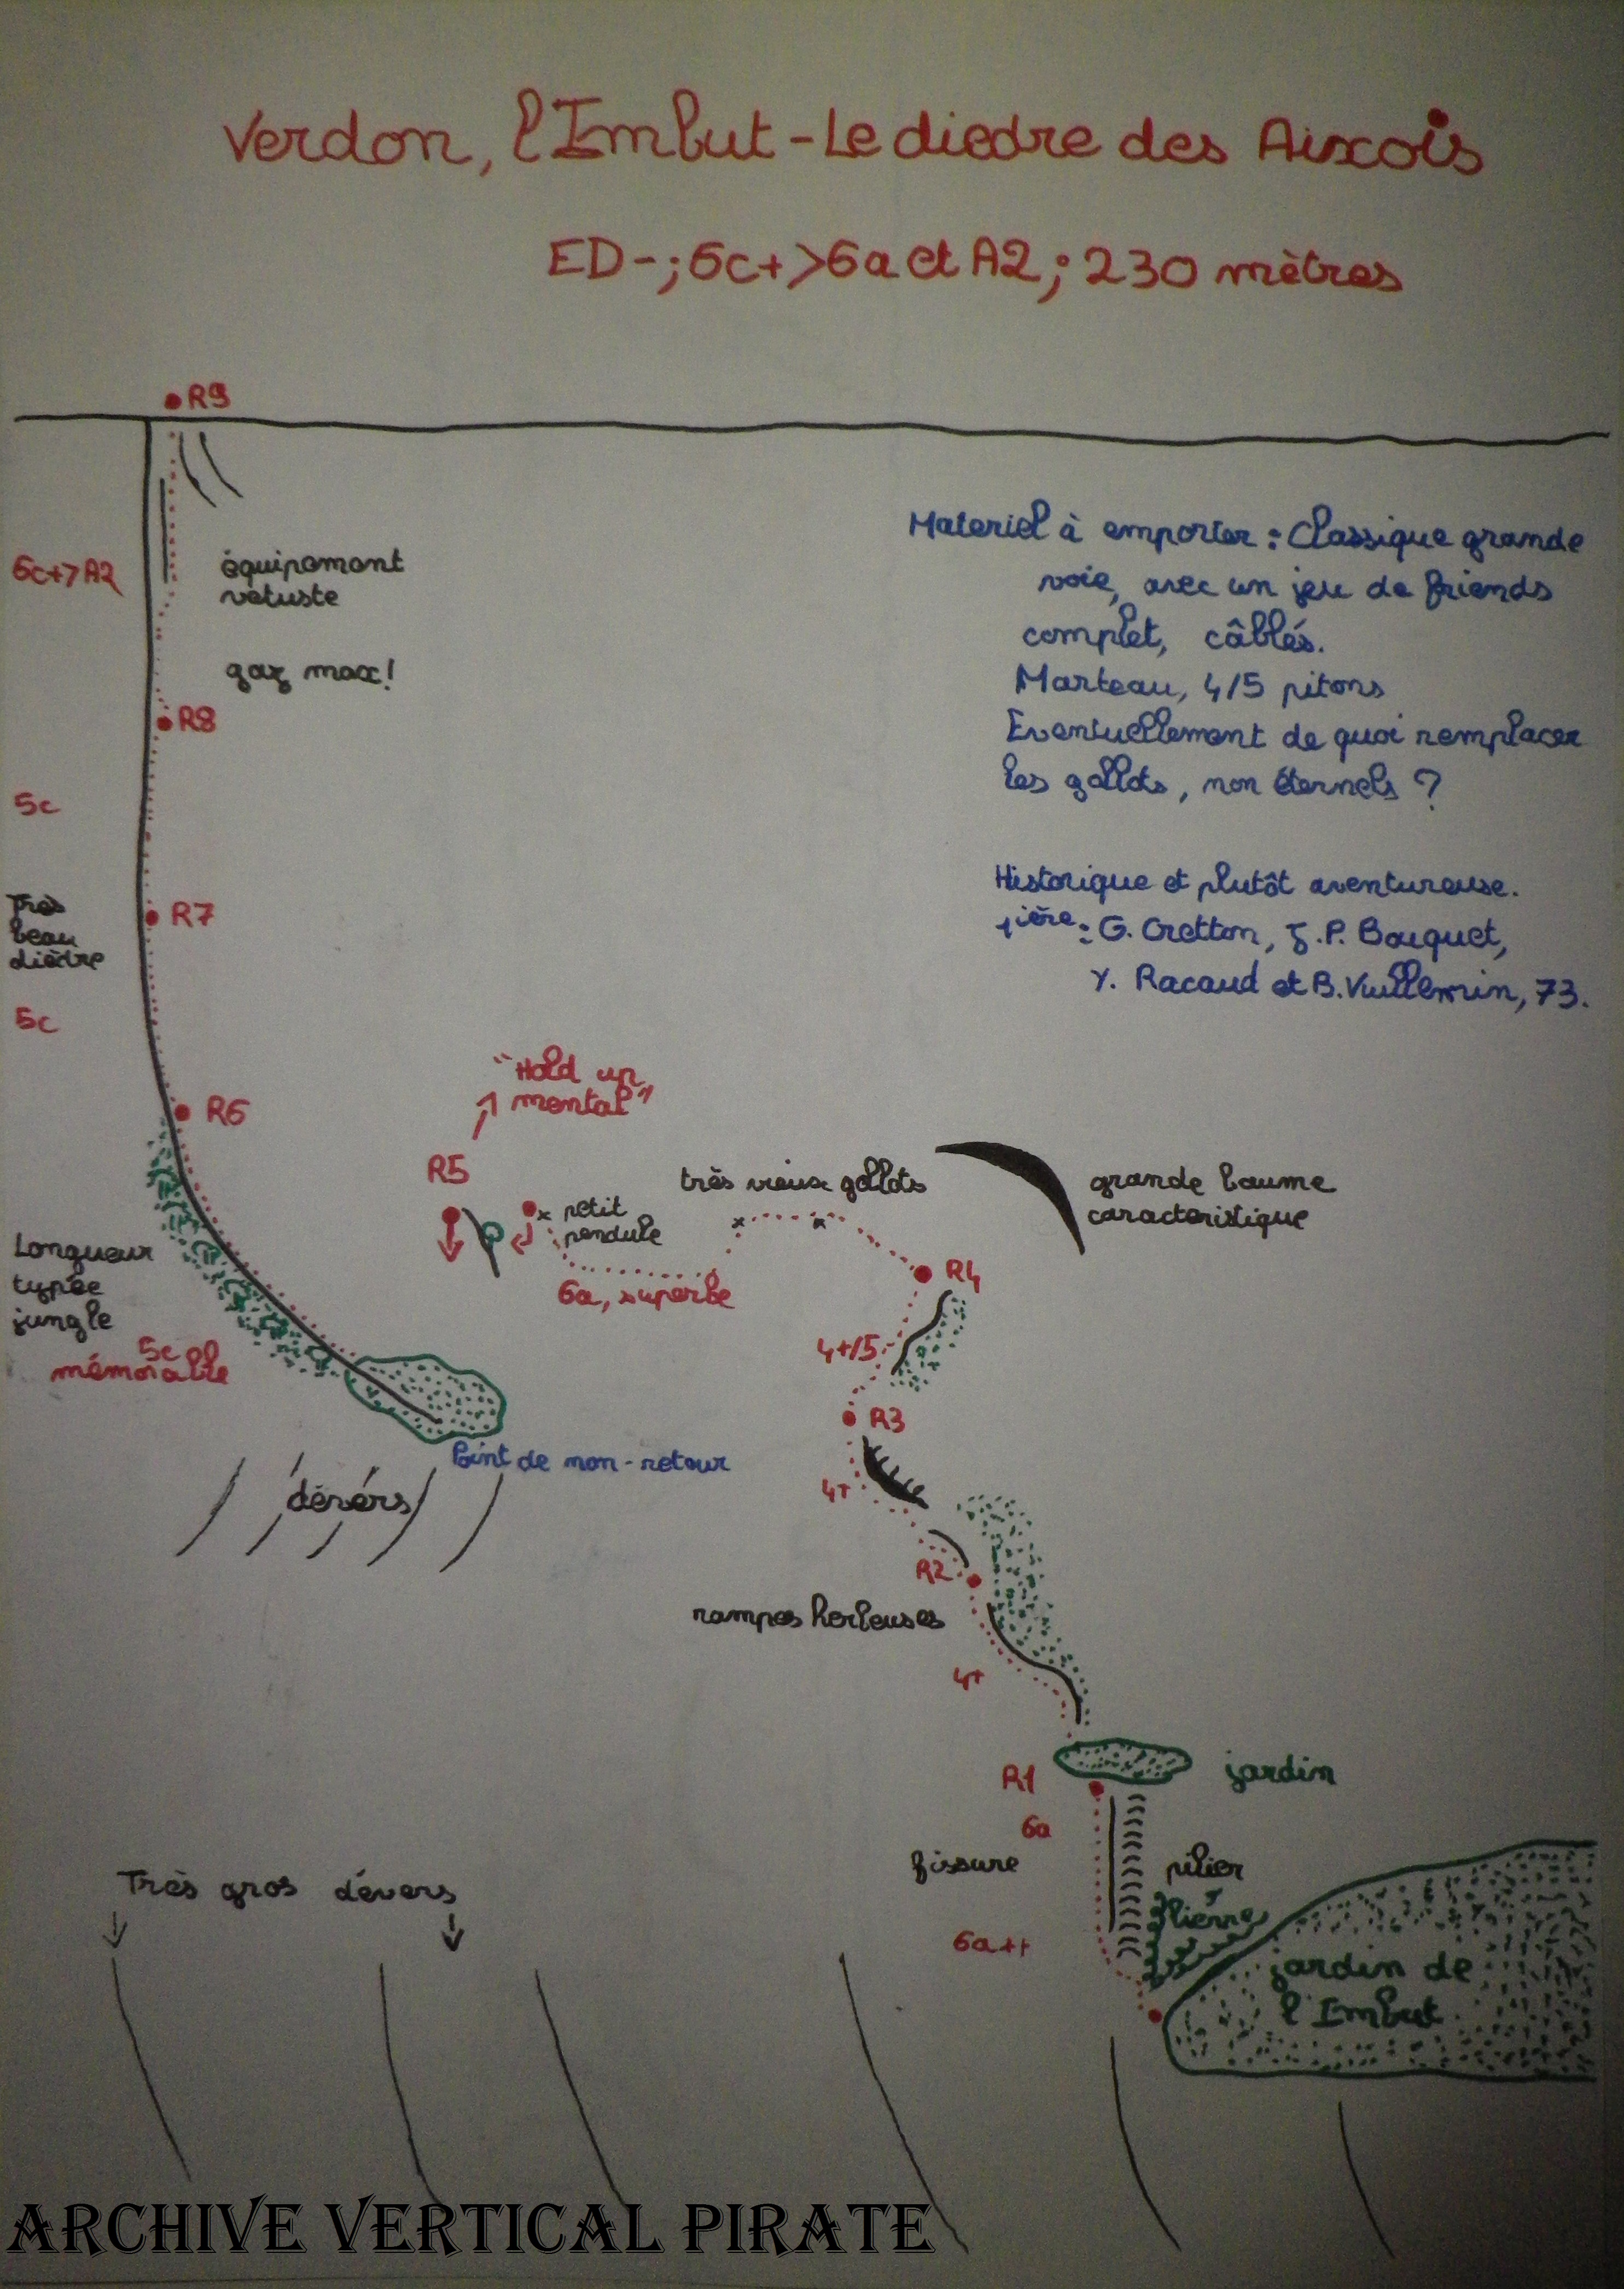 Verdon, l'Imbut - Le diedre des Aixois
ED-; 6c+>6a et A2; 230 mètres
R9
6c+>A2
équipement
vetuste
gaz max!
R8
5c
Très
beau
dièdre
R7
5c
R6
Materiel à emporter : Classique grande
voie, avec un jeu de friends
complet, câblés.
Marteau, 4/5 pitons
Eventuellement de quoi remplacer
les gollots, non éternels ?
Historique et plutôt aventureuse.
1ière: G. Cretton, J.P. Bouquet,
Y. Racaud et B. Vuillemin, 73.
"Hold up
mental"
R5
petit
pendule
6a, superbe
très vieux gollots
grande baume
caracteristique
R4
4+/5
R3
4+
Longueur
typée
jungle
5c
mémorable
Point de non-retour
dévers
R2
rampes herbeuses
4+
R1
jardin
6a
fissure
pilier
6a++
lierre
jardin de
l'Imbut
Très gros dévers
ARCHIVE VERTICAL PIRATE